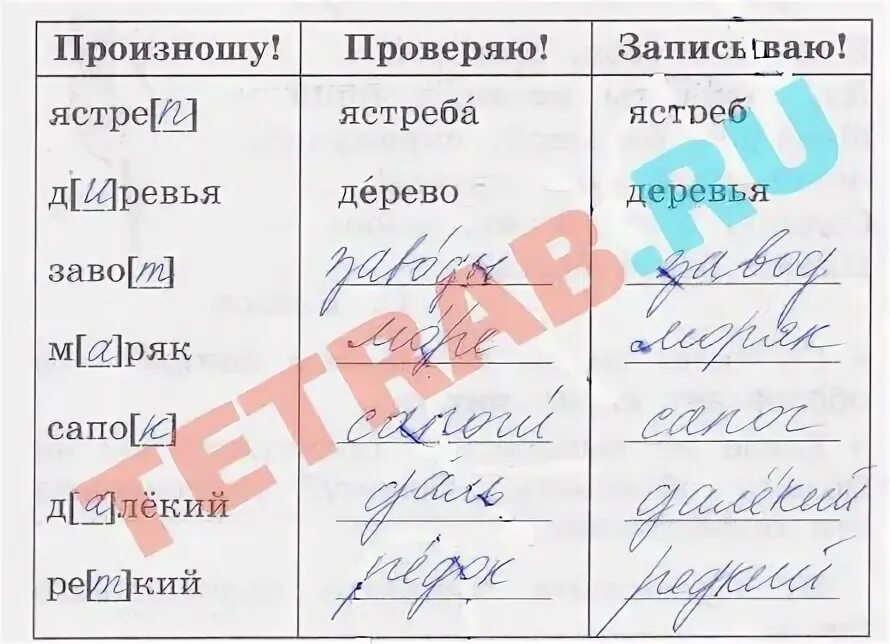 Произношу! Проверяю! Записываю!
ястре[п] ястреба́ ястреб
д[и]ревья де́рево деревья
заво[т] заво́ды завод
м[а]ряк мо́ре моряк
сапо[к] сапоги́ сапог
д[а]лёкий да́ль далёкий
ре[т]кий ре́док редкий
TETRAB.RU